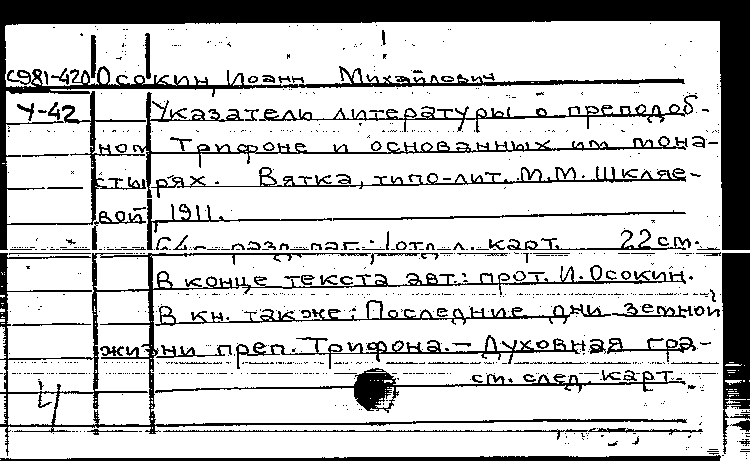 С981-420 Осокин, Иоанн Михайлович
У-42 Указатель литературы о преподоб-
ном Трифоне и основанных им мона-
стырях. Вятка, типо-лит. М.М. Шкляе-
вой, 1911.
64 с. разд. паг.; 1 отд. л. карт. 22 см.
В конце текста авт.: прот. И. Осокин.
В кн. также: Последние дни земной
жизни преп. Трифона. – Духовная гра-
см. след. карт.